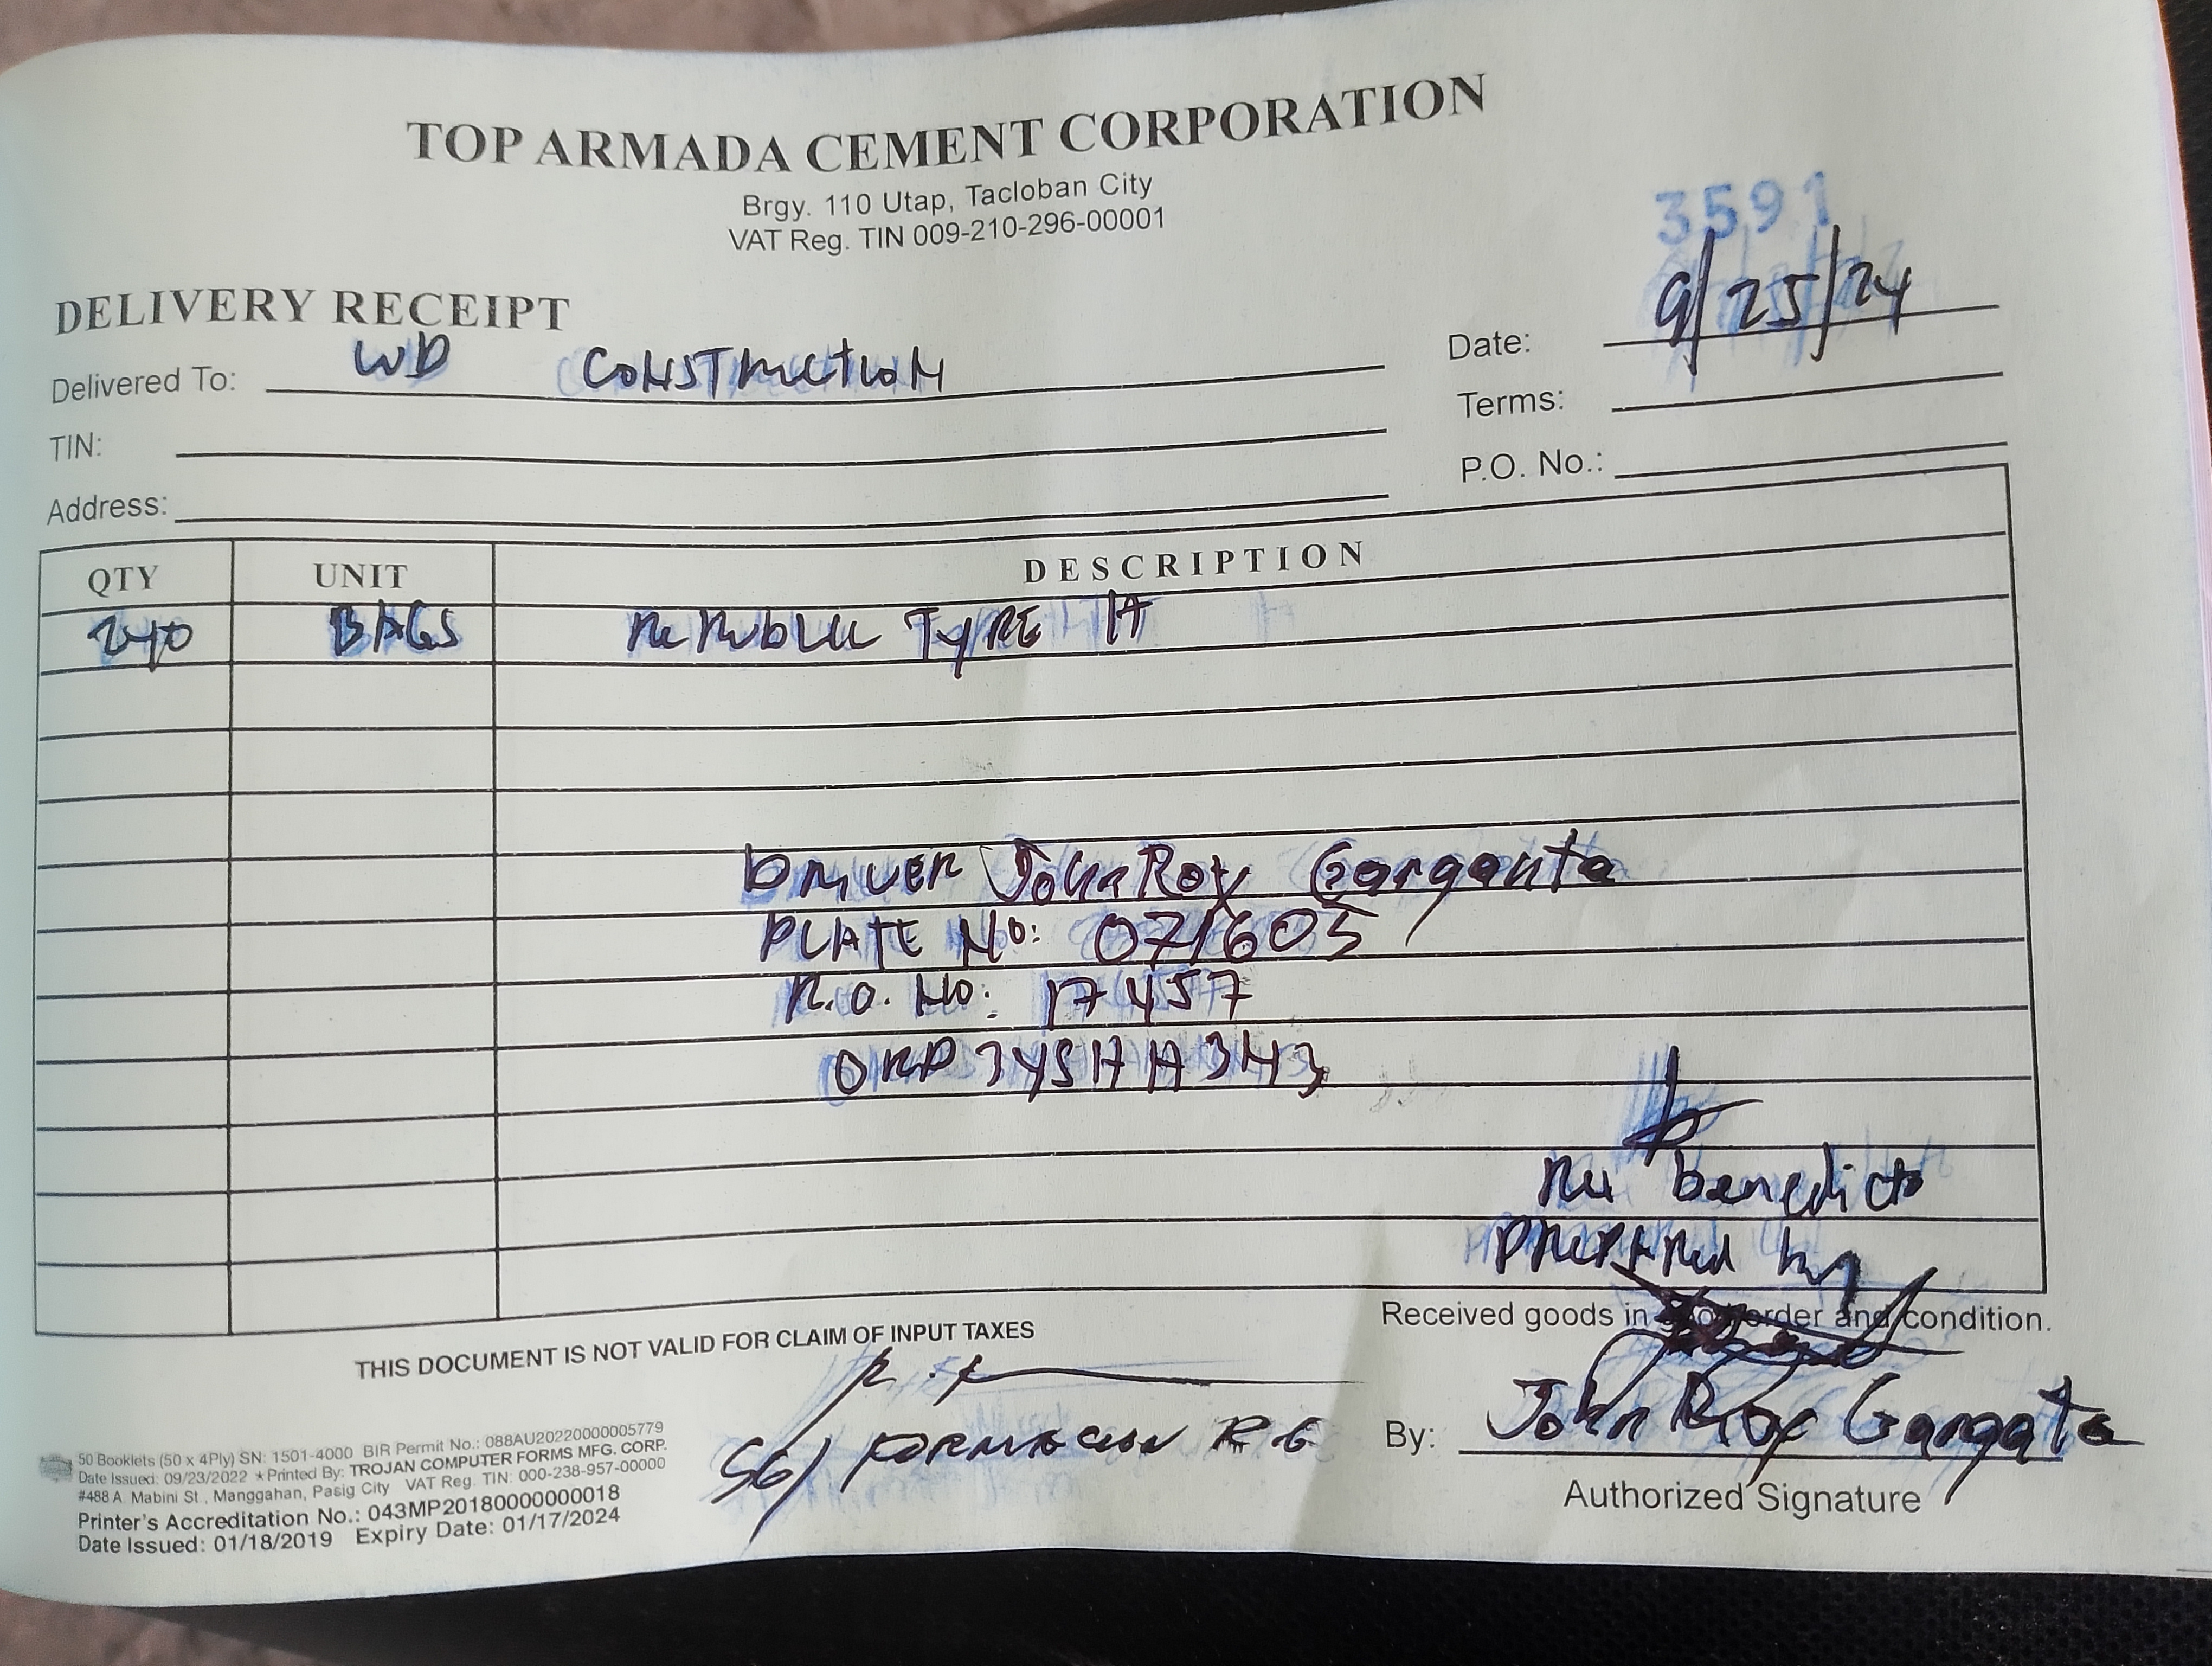 TOP ARMADA CEMENT CORPORATION
Brgy. 110 Utap, Tacloban City
VAT Reg. TIN 009-210-296-00001
3591
DELIVERY RECEIPT
Date: 9/25/24
Delivered To: WD CONSTRUCTION
Terms:
TIN:
P.O. No.:
Address:
QTY UNIT DESCRIPTION
240 BAGS REPUBLIC TYPE 1T
DRIVER JohnRoy Garganta
PLATE No: 071605
P.O. No: 17457
benedicto
PREPARED by
Received goods in order and condition.
THIS DOCUMENT IS NOT VALID FOR CLAIM OF INPUT TAXES
SG/ FORMACION R.G
By: John Roy Gargata
Authorized Signature
50 Booklets (50 x 4Ply) SN: 1501-4000 BIR Permit No.: 088AU20220000005779
Date Issued: 09/23/2022 ★Printed By: TROJAN COMPUTER FORMS MFG. CORP.
#488 A. Mabini St., Manggahan, Pasig City VAT Reg. TIN: 000-238-957-00000
Printer's Accreditation No.: 043MP20180000000018
Date Issued: 01/18/2019 Expiry Date: 01/17/2024